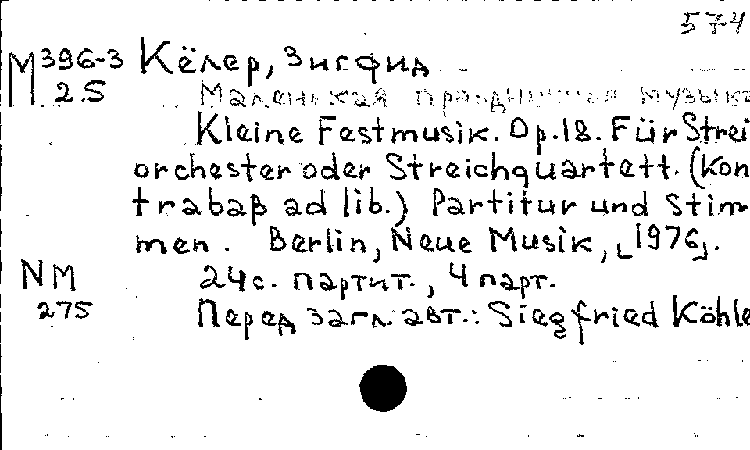 574
М396-3 Кёлер, Зигфид
2.5 Маленькая праздничная музыка
Kleine Festmusik. Op.18. Für Strei
orchester oder Streichquartett. (Kon
trabaß ad lib.) Partitur und Stim
men. Berlin, Neue Musik, [1976].
NM 24с. партит., 4 парт.
275 Перед загл. авт.: Siegfried Köhle